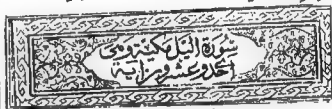 سورة اليل مكية وهي
احد وعشرون اية